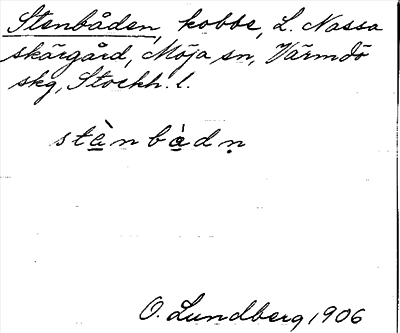 Stenbåden, kobbe, L. Nassa
skärgård, Möja sn, Värmdö
skg, Stockh. l.
stä̀nbå̀dṇ
O. Lundberg 1906